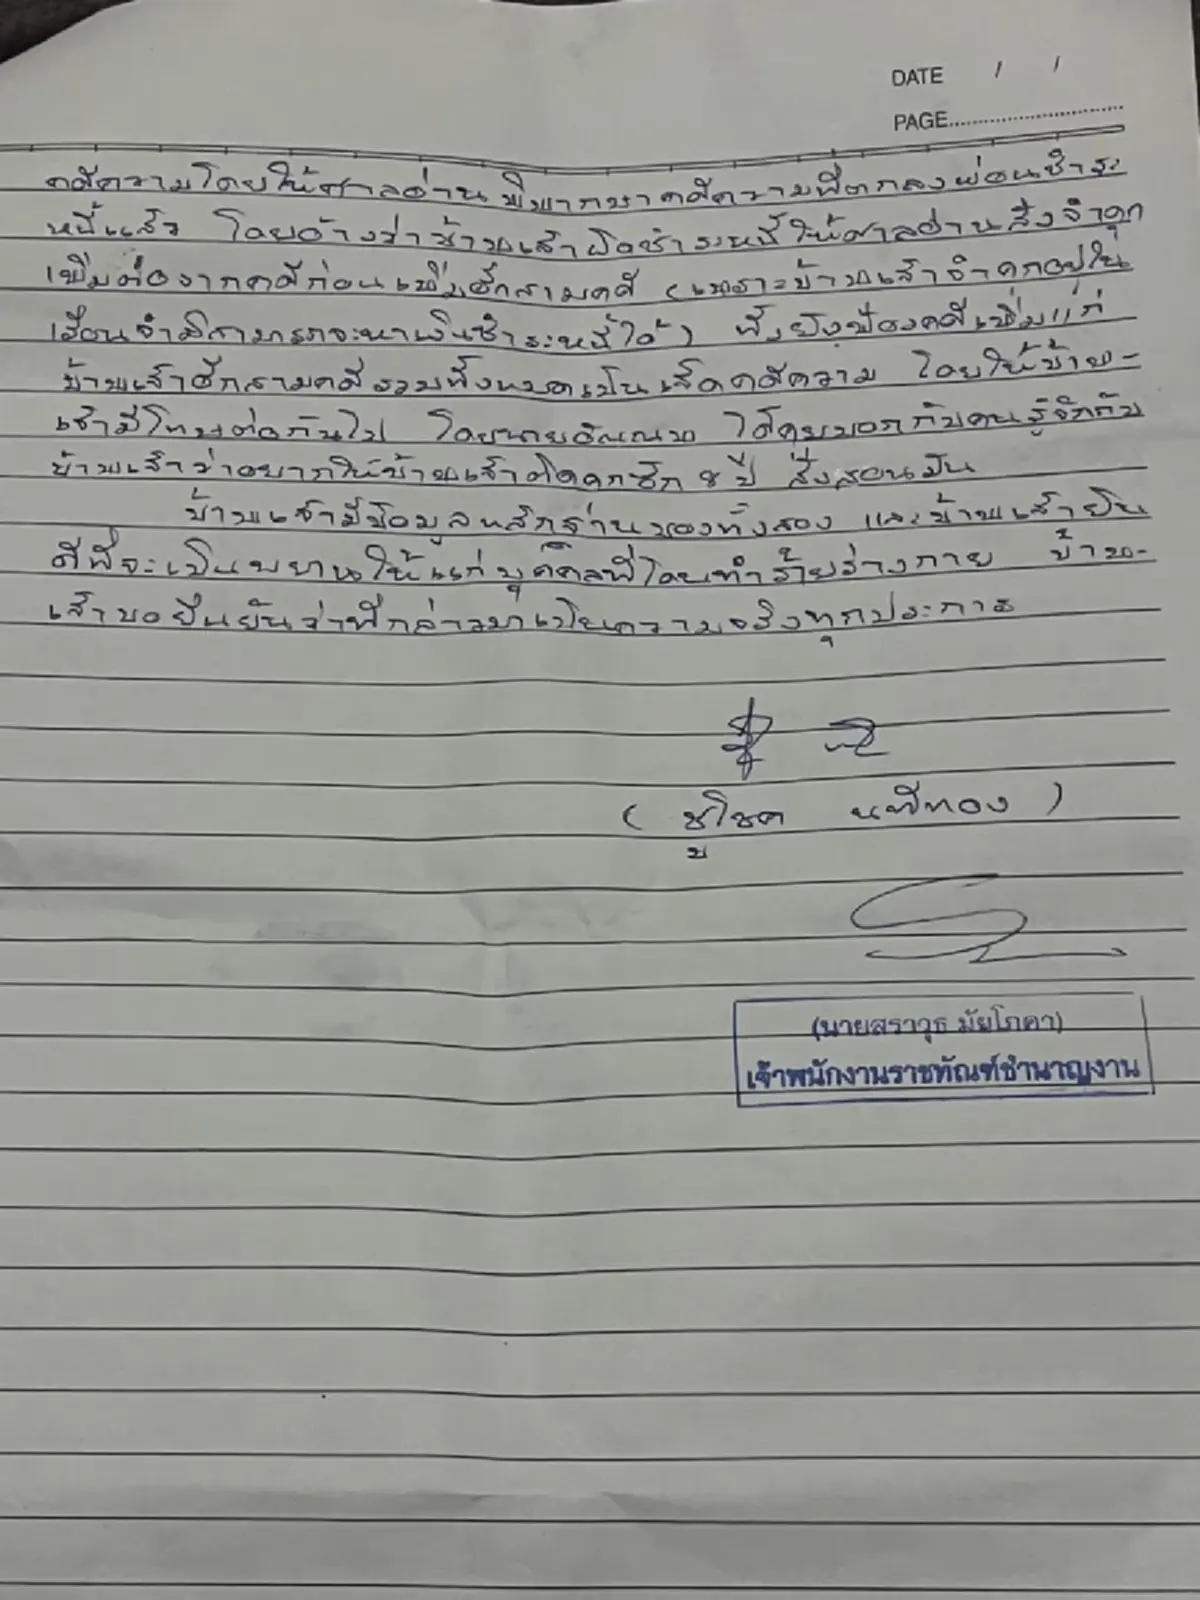 DATE / /
PAGE
คดีความโดยให้ศาลอ่านพิพากษาคดีความที่ตกลงผ่อนชำระ
หนี้แล้ว โดยอ้างว่าข้าพเจ้าผิดชำระหนี้ให้ศาลอ่านสั่งจำคุก
เพิ่มต่อจากคดีก่อนเพิ่มอีกสามคดี (เพราะข้าพเจ้าจำคุกอยู่ใน
เรือนจำมิสามารถจะหาเงินชำระหนี้ได้) ทั้งยังฟ้องคดีเพิ่มแก่
ข้าพเจ้าอีกสามคดีรวมทั้งหมดเป็นเจ็ดคดีความ โดยให้ข้าพ-
เจ้ามีโทษต่อกันไป โดยนาย ได้คุยบอกกับคนรู้จักกับ
ข้าพเจ้าว่าอยากให้ข้าพเจ้าติดคุกซัก ๘ ปี สั่งสอนมัน
ข้าพเจ้ามีข้อมูลหลักฐานของทั้งสอง และข้าพเจ้ายิน
ดีที่จะเป็นพยานให้แก่บุคคลที่โดนทำร้ายร่างกาย ข้าพ-
เจ้าขอยืนยันว่าที่กล่าวมาเป็นความจริงทุกประการ
( ชูโชค นทีทอง )
(นายสราวุธ มัยโภคา)
เจ้าพนักงานราชทัณฑ์ชำนาญงาน